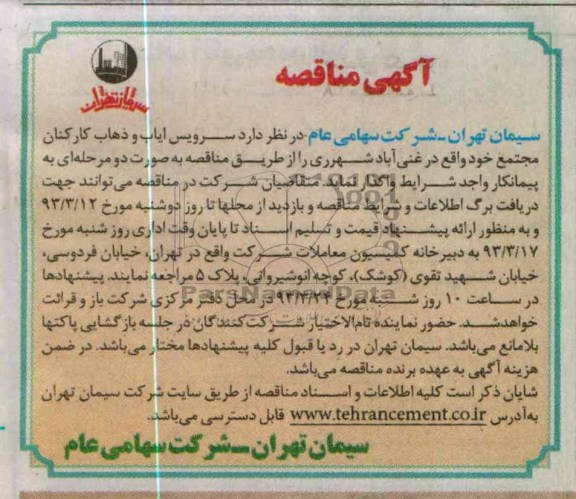 آگهی مناقصه
سیمان تهران
سیمان تهران ـ شرکت سهامی عام در نظر دارد سرویس ایاب و ذهاب کارکنان
مجتمع خود واقع در غنی‌آباد شهرری را از طریق مناقصه به صورت دو مرحله‌ای به
پیمانکار واجد شرایط واگذار نماید. متقاضیان شرکت در مناقصه می‌توانند جهت
دریافت برگ اطلاعات و شرایط مناقصه و بازدید از محلها تا روز دوشنبه مورخ ۹۳/۳/۱۲
و به منظور ارائه پیشنهاد قیمت و تسلیم اسناد تا پایان وقت اداری روز شنبه مورخ
۹۳/۳/۱۷ به دبیرخانه کمیسیون معاملات شرکت واقع در تهران، خیابان فردوسی،
خیابان شهید تقوی (کوشک)، کوچه انوشیروانی، پلاک ۵ مراجعه نمایند. پیشنهادها
در ساعت ۱۰ روز شنبه مورخ در محل دفتر مرکزی شرکت باز و قرائت
خواهد شد. حضور نماینده تام‌الاختیار شرکت‌کنندگان در جلسه بازگشایی پاکتها
بلامانع می‌باشد. سیمان تهران در رد یا قبول کلیه پیشنهادها مختار می‌باشد. در ضمن
هزینه آگهی به عهده برنده مناقصه می‌باشد.
شایان ذکر است کلیه اطلاعات و اسناد مناقصه از طریق سایت شرکت سیمان تهران
به آدرس www.tehrancement.co.ir قابل دسترسی می‌باشد.
سیمان تهران ـ شرکت سهامی عام
ParsNamadData